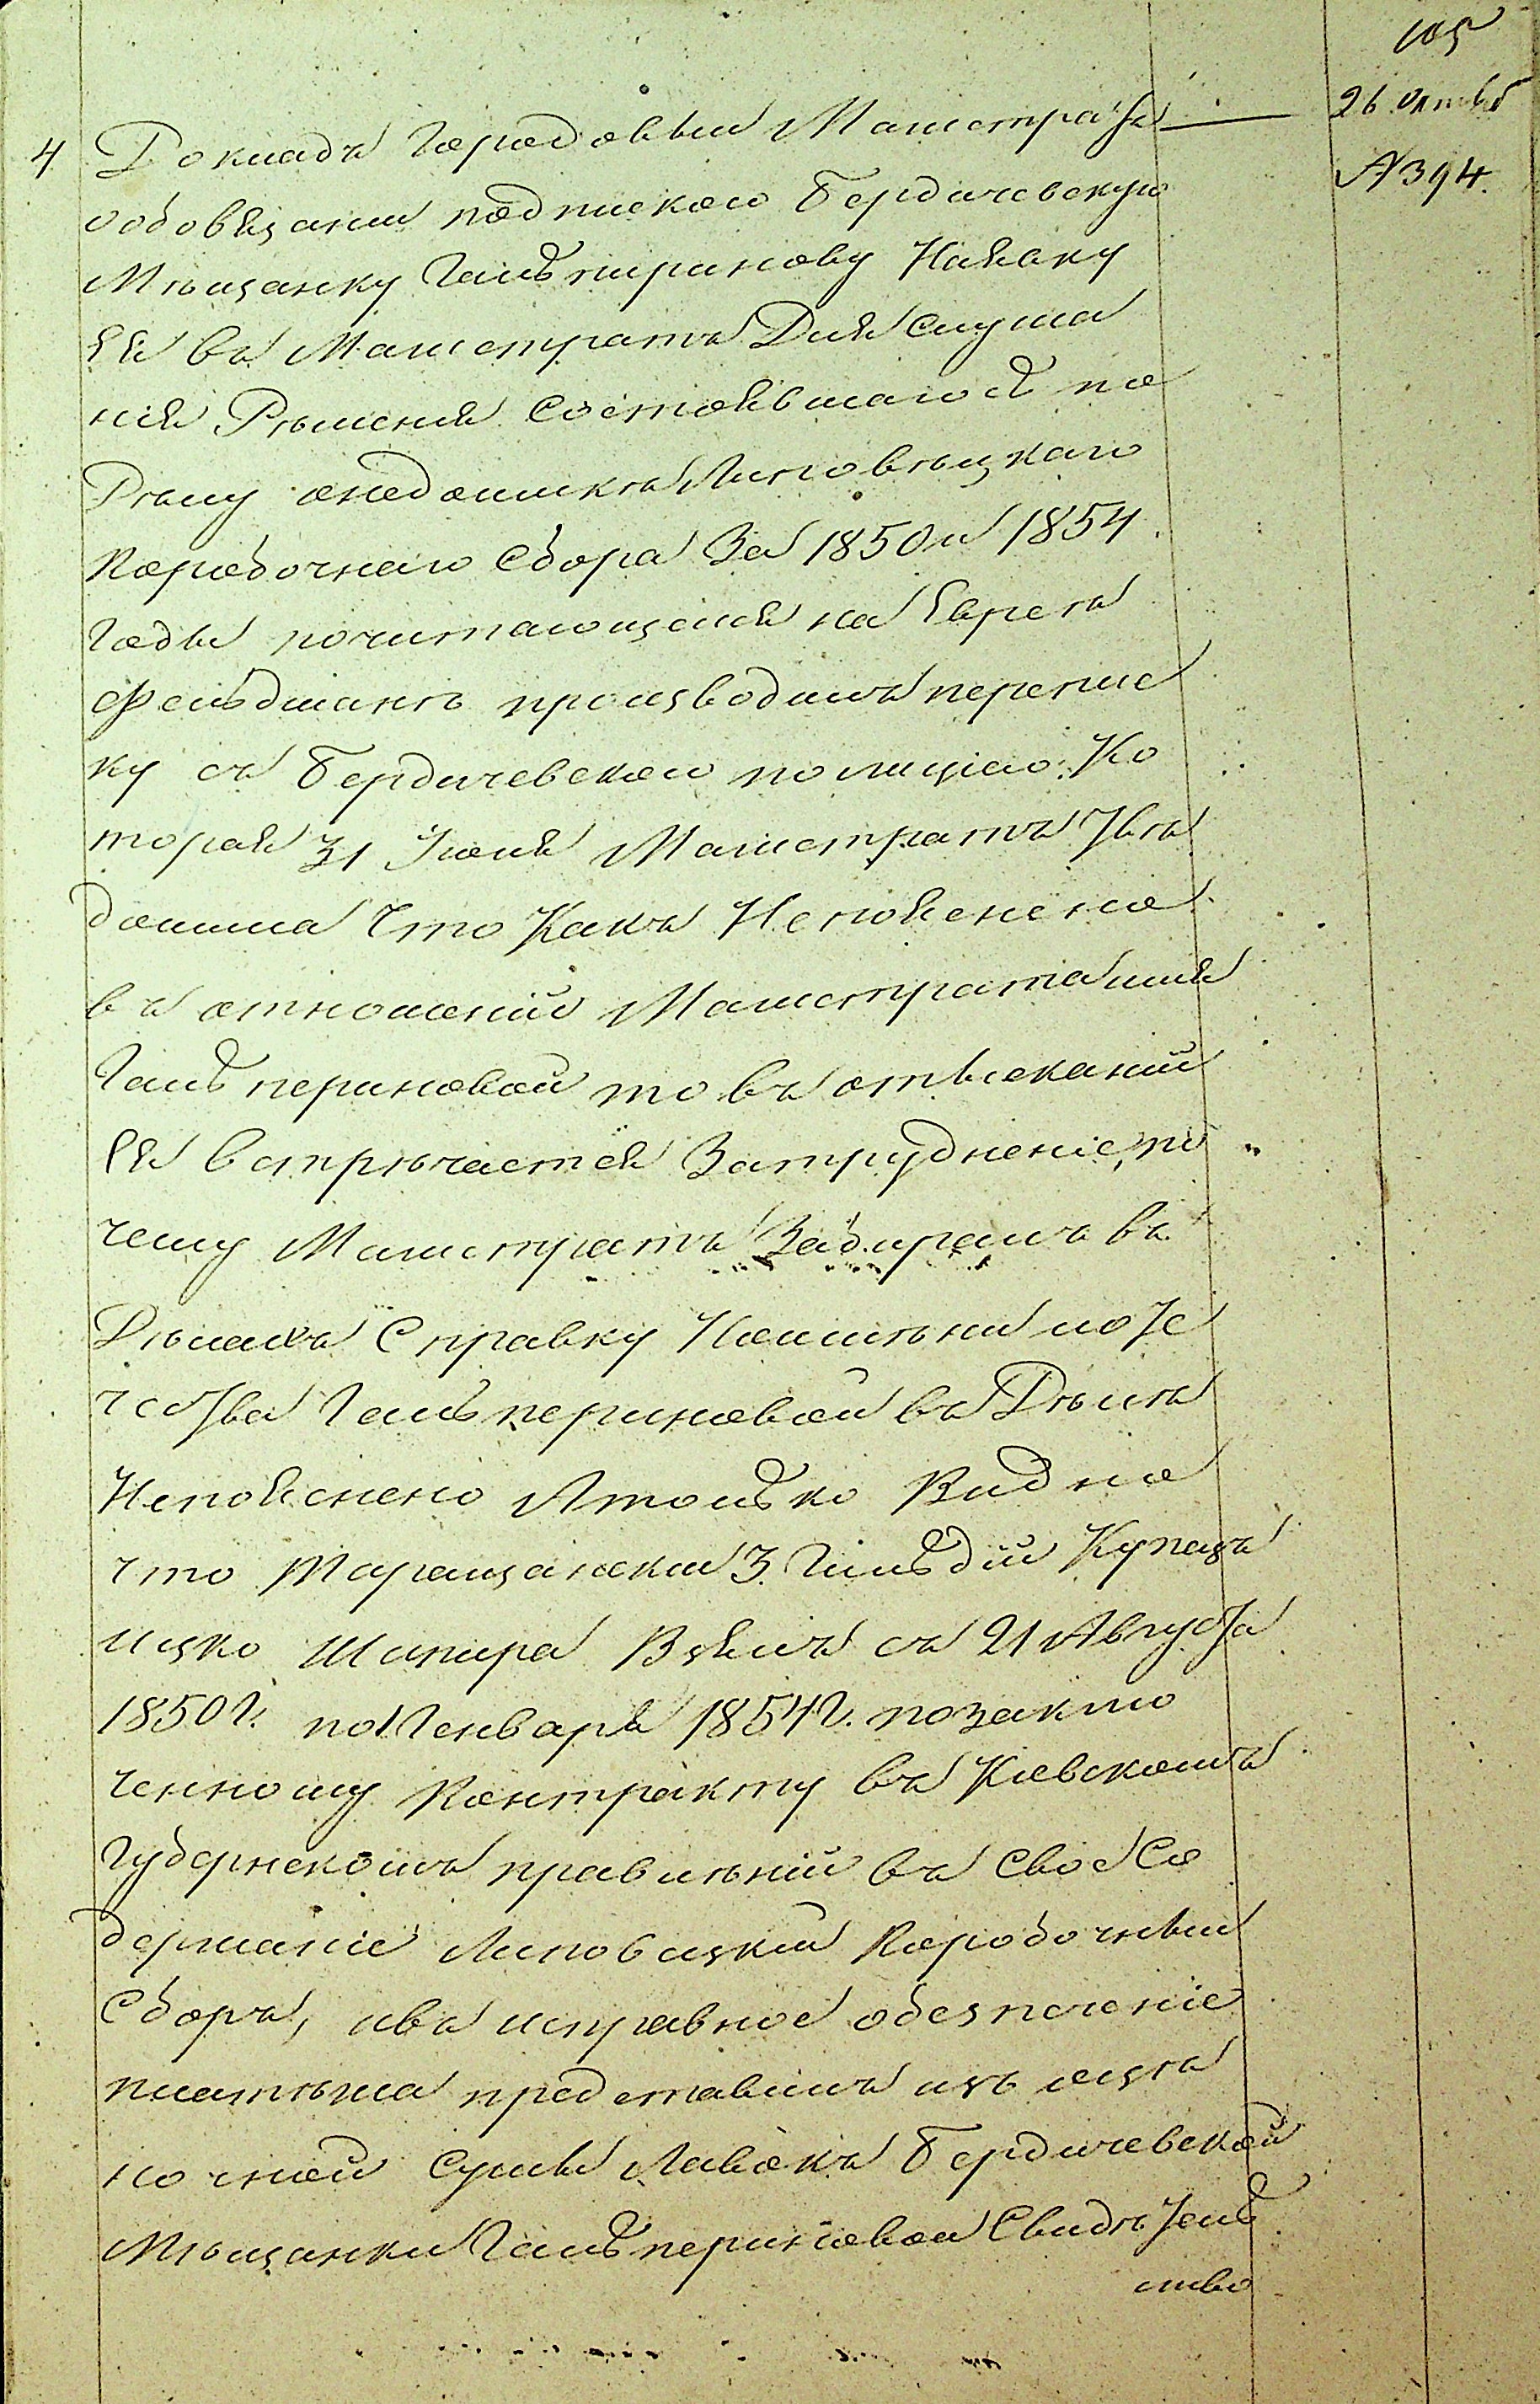 105
26 Октяб
№ 394.
4 Докладъ Городовый Магистратъ
объ обязаніи подпискою Бердичевскую
Мѣщанку Гальпиринову Къявку
ея въ Магистратъ Для слуша
нія Рѣшенія Состоявшагося по
Дѣлу о недоимкѣ Липовѣцкаго
Коробочнаго Сбора За 1850 и 1854.
Годы почитающейся на Евреѣ
Фельдманѣ производилъ перепис
ку съ Бердичевскою полиціею Ко
торая 31 Іюля Магистратъ Увѣ
домила Что Какъ Непояснено
въ отношеніи Магистрата имя
Гальпериновой то въ отысканіи
Ея встрѣчается Затрудненіе, по
чему Магистратъ Забиралъ въ
Дѣлахъ Справку Коими
Гальпериновой въ Дѣлѣ
Непояснено А только Видно
что Таращанскій 3. Гильдіи Купецъ
Ицко Шапира Взялъ съ 21 Августа
1850 г. по 1 Генваря 1854 г. по заклю
ченному Контракту въ Кіевскомъ
Губернскомъ правленіи въ свое Со
держаніе Липовецкій Коробочный
Сборъ, и въ исправное обезпеченіе
платежа представилъ изъ оцѣ
ночной Сумы Лавокъ Бердичевской
Мѣщанки Гальпериновой Свидѣтель
ство